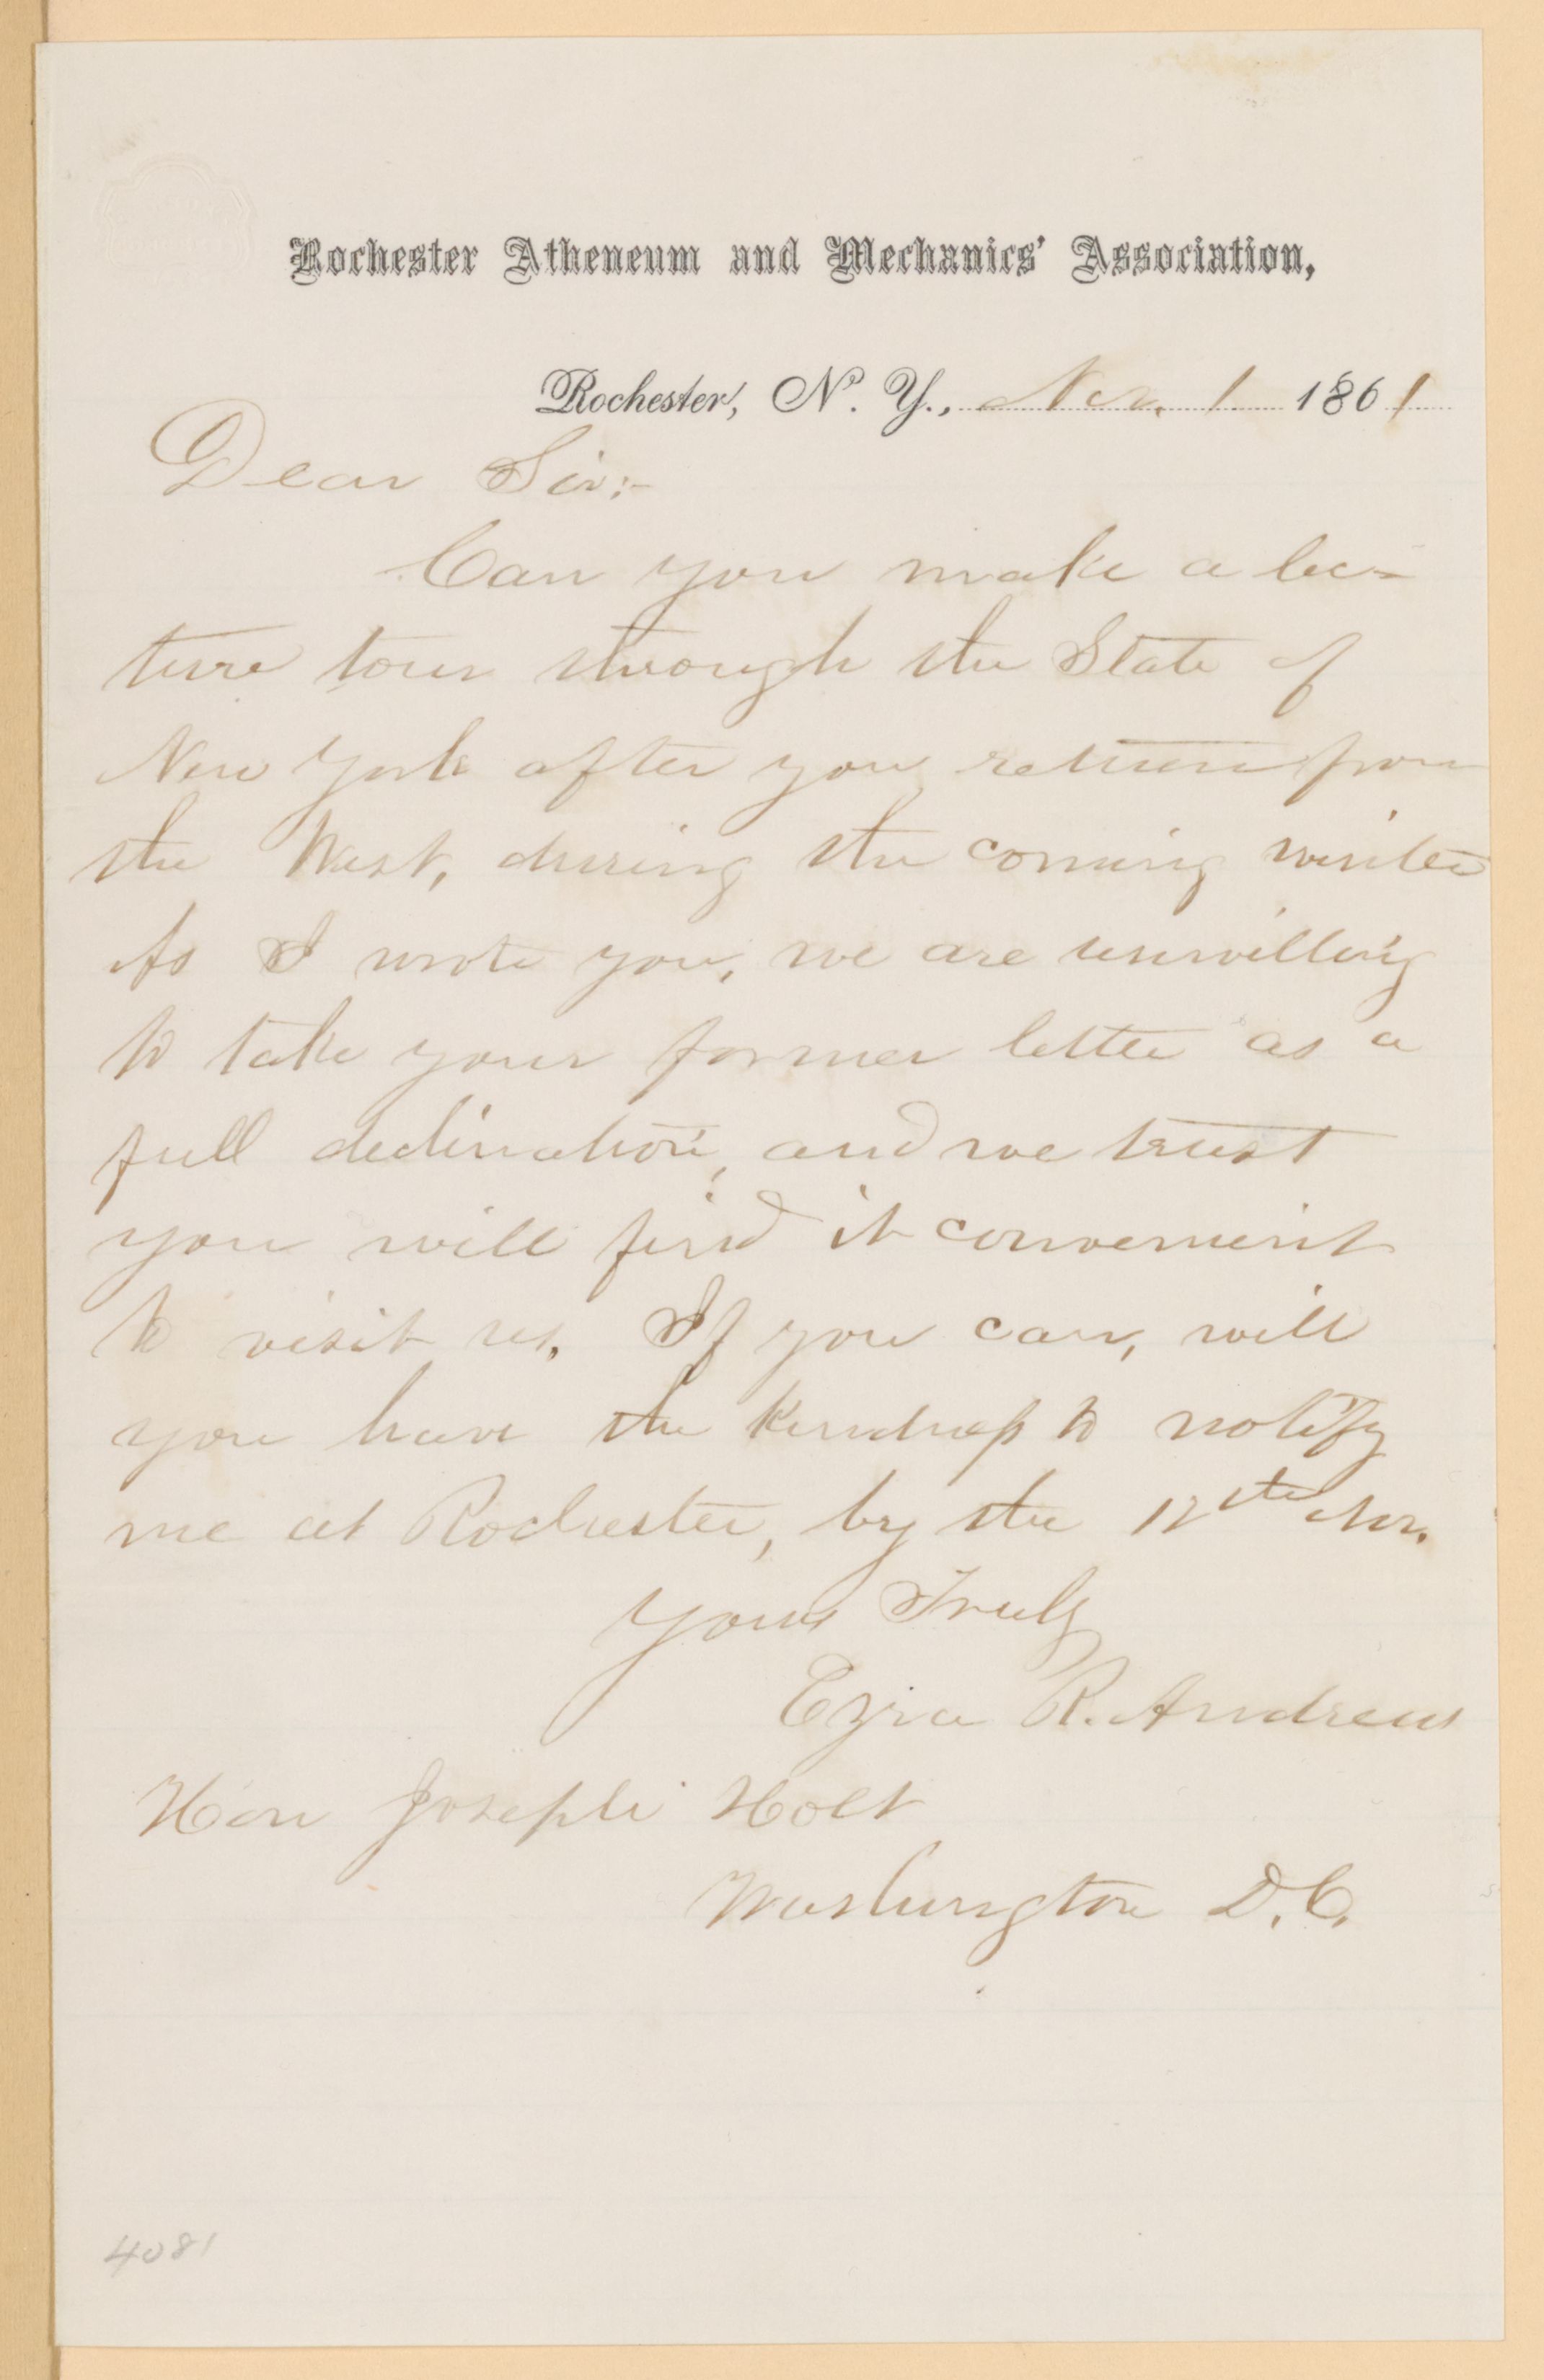 Rochester Atheneum and Mechanics' Association,
Rochester, N. Y., Nov. 1 1861
Dear Sir:-
Can you make a lec-
ture tour through the State of
New York after you return from
the West, during the coming winter
As I wrote you, we are unwilling
to take your former letter as a
full declination, and we trust
you will find it convenient
to visit us. If you can, will
you have the kindness to notify
me at Rochester, by the 12th Nov.
Yours Truly
Ezra R. Andrews
Hon Joseph Holt
Washington D.C.
4081